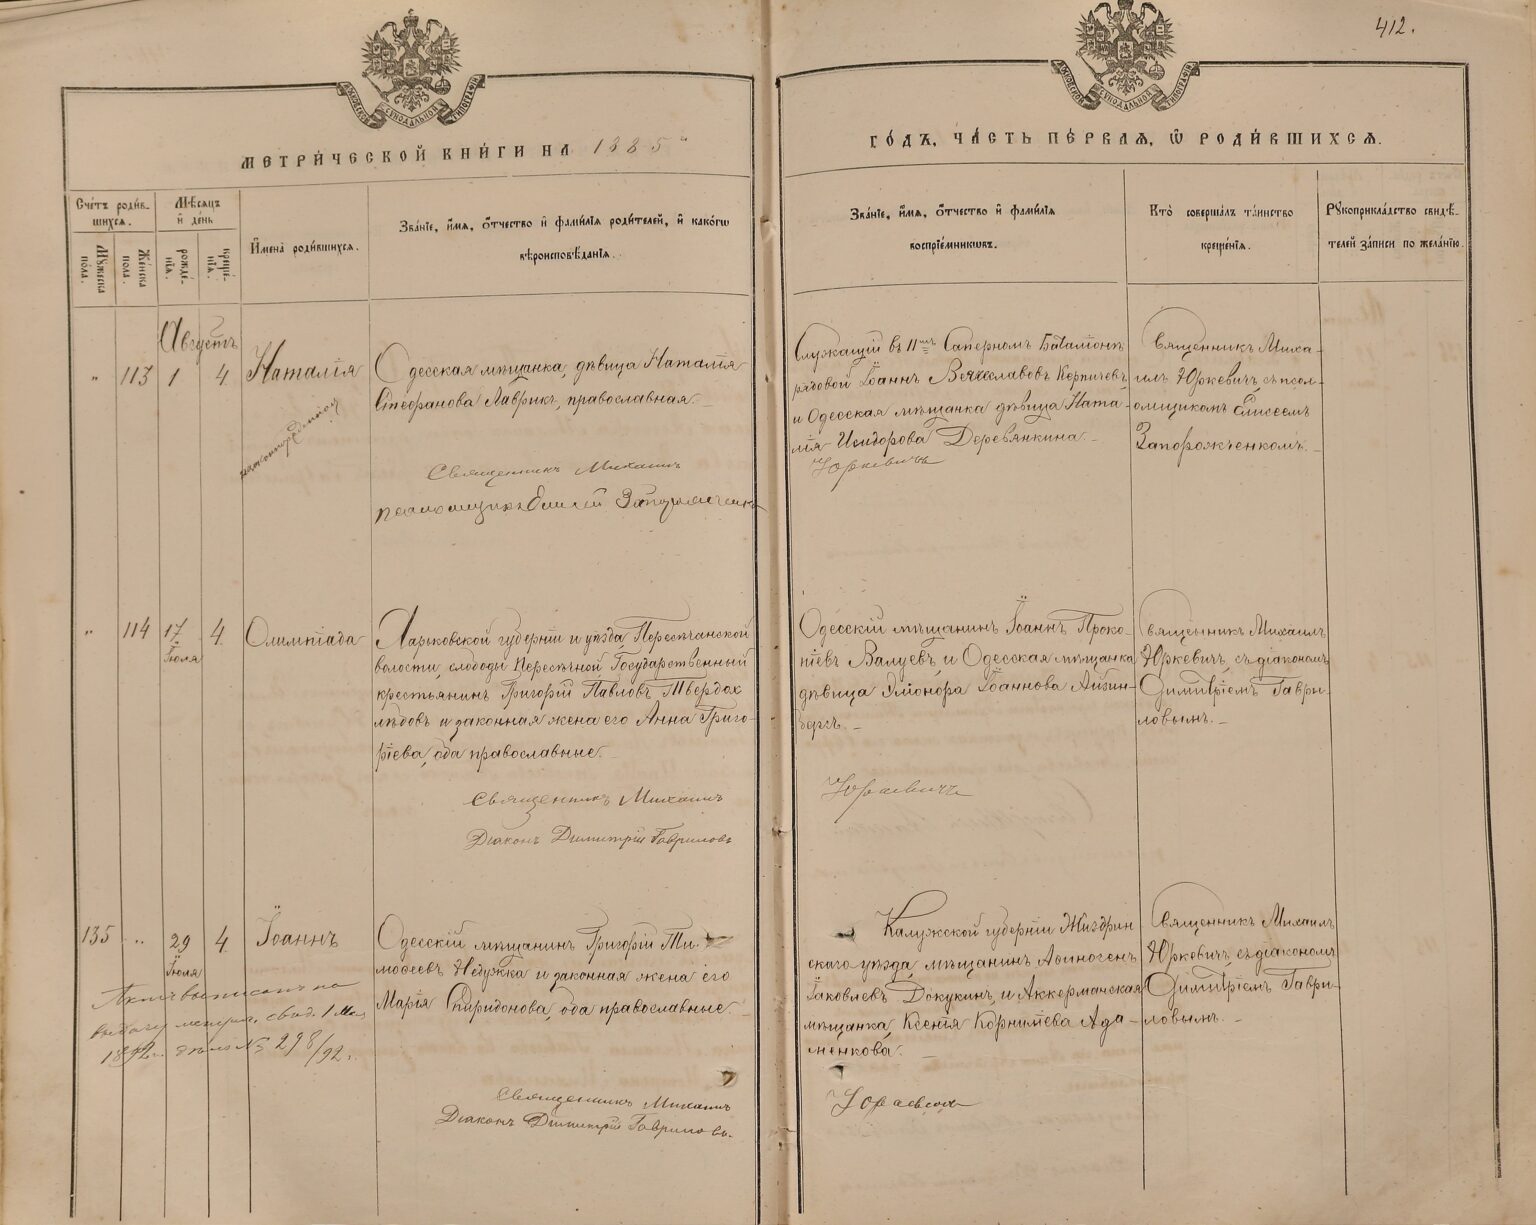 412.
МОСКОВСКОЙ СѴНОДАЛЬНОЙ ТИПОГРАФІИ
МОСКОВСКОЙ СѴНОДАЛЬНОЙ ТИПОГРАФІИ
МЕТРИ́ЧЕСКОЙ КНИ́ГИ НА 1885
ГО́ДЪ, ЧА́СТЬ ПЕ́РВАЯ, Ѡ РОДИ́ВШИХСЯ.
Сче́тъ роди́в-
шихся.
Му́жеска
по́ла.
Же́нска
пола.
Мѣ́сяцъ
и де́нь
рожде́-
нїя.
креще́-
нїя.
И҆мена̀ роди́вшихся.
Зва́нїе, и҆́мя, о҆́тчество и҆ фами́лїя роди́телей, и҆ како́гѡ
вѣроисповѣ́данїя.
Зва́нїе, и҆́мя, о҆́тчество и҆ фами́лїя
воспрїе́мниковъ.
Кто̀ соверша́лъ та́инство
креще́нїя.
Рꙋкоприкла́дство свидѣ́-
телей за́писи по жела́нїю.
Августъ
" 113 1 4 Наталія
незаконнорожденная
Одесская мѣщанка, дѣвица Наталія
Стефанова Лаврикъ, православная.
Священникъ Михаилъ
псаломщикъ Елисей Запорожченко
Служащій въ 11мъ Саперномъ Баталіонѣ
рядовой Іоаннъ Вячеславовъ Керпичевъ,
и Одесская мѣщанка дѣвица Ната-
лія Исидорова Деревянкина.
Юркевичъ
Священникъ Миха-
илъ Юркевичъ, съ псал-
омщикомъ Елисеемъ
Запорожченкомъ.
" 114 17 4. Олимпіада
Іюля
Харьковской губерніи и уѣзда, Пересѣчанской
волости, слободы Пересѣчной Государственный
крестьянинъ Григорій Павловъ Твердох
лѣбовъ и законная жена его Анна Григо-
ріева, оба православные.
Священникъ Михаилъ
Діаконъ Димитрій Гавриловъ
Одесскій мѣщанинъ Іоаннъ Проко-
піевъ Валуевъ, и Одесская мѣщанка
дѣвица Эліонора Іоаннова Айзин-
бергъ.
Юркевичъ
Священникъ Михаилъ
Юркевичъ, съ діакономъ
Димитріемъ Гаври-
ловымъ.
135 " 29 4 Іоаннъ
Іюля
Актъ выписанъ на
выдачу метрич. свид. 1 Мая
1892 г. дѣло № 298/92.
Одесскій мѣщанинъ Григорій Ти-
моѳеевъ Недужка и законная жена его
Марія Спиридонова, оба православные.
Священникъ Михаилъ
Діаконъ Димитрій Гавриловъ.
Калужской губерніи Жиздрин
скаго уѣзда, мѣщанинъ Аѳиногенъ
Іаковлевъ Докукинъ, и Аккерманская
мѣщанка, Ксенія Корниліева Ада-
менкова.
Юркевичъ
Священникъ Михаилъ
Юркевичъ, съ діакономъ
Димитріемъ Гаври-
ловымъ.